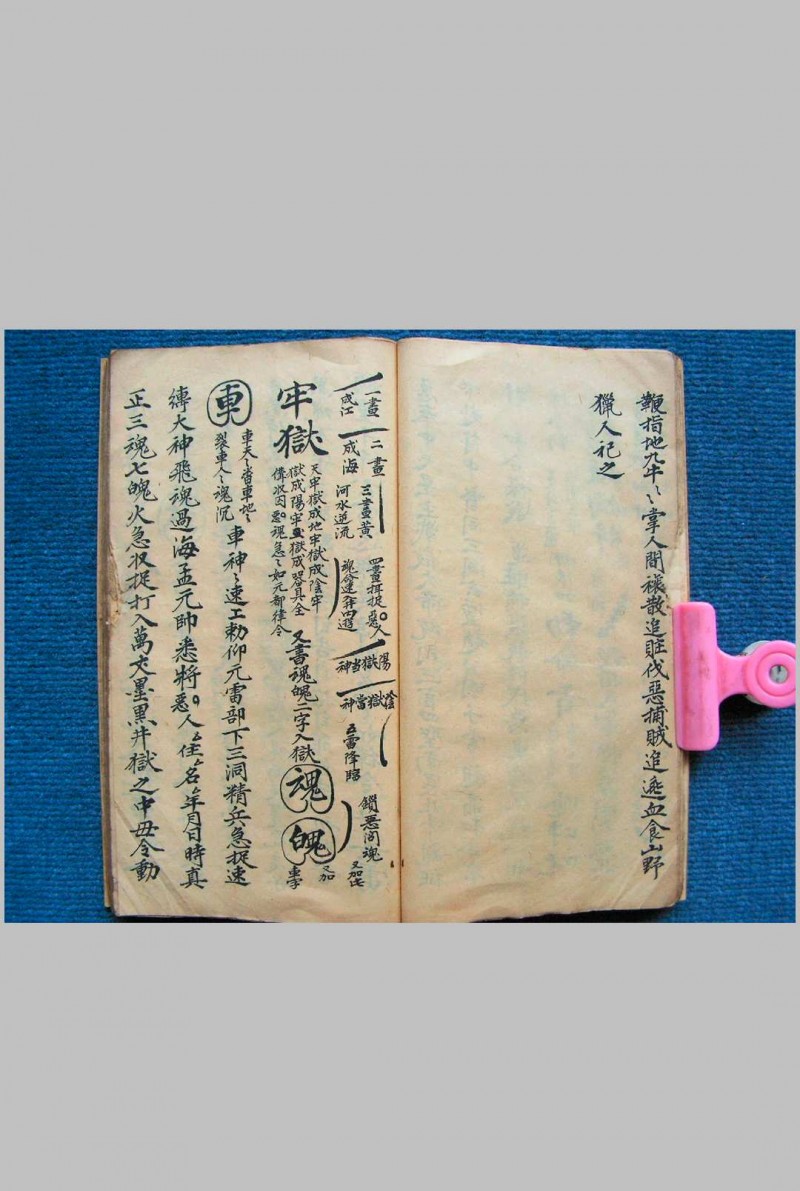 鞭指地九牛〻掌人間禳散追賍伐惡捕賊追逃血食山野
獵人祀之
一畫
成江
二畫
成海
三畫黃
河水逆流
四畫捉惡人
魂
陽獄當神
陰獄當神
五雷降臨
鎖惡陰魂
又加
牢獄
天牢獄成地牢獄成陰牢
獄成陽牢獄成器具全
收囚惡魂急〻如元都律令
又書魂魄二字入獄
魂
魄
又加
車字
車
車天〻沓車地〻
裂車人〻魂沉
車神〻速工勅仰元雷部下三洞精兵急捉速
縛大神飛魂過海孟元帥悉將惡人住名年月日時真
正三魂七魄火急收捉打入萬丈墨黑井獄之中毋令動